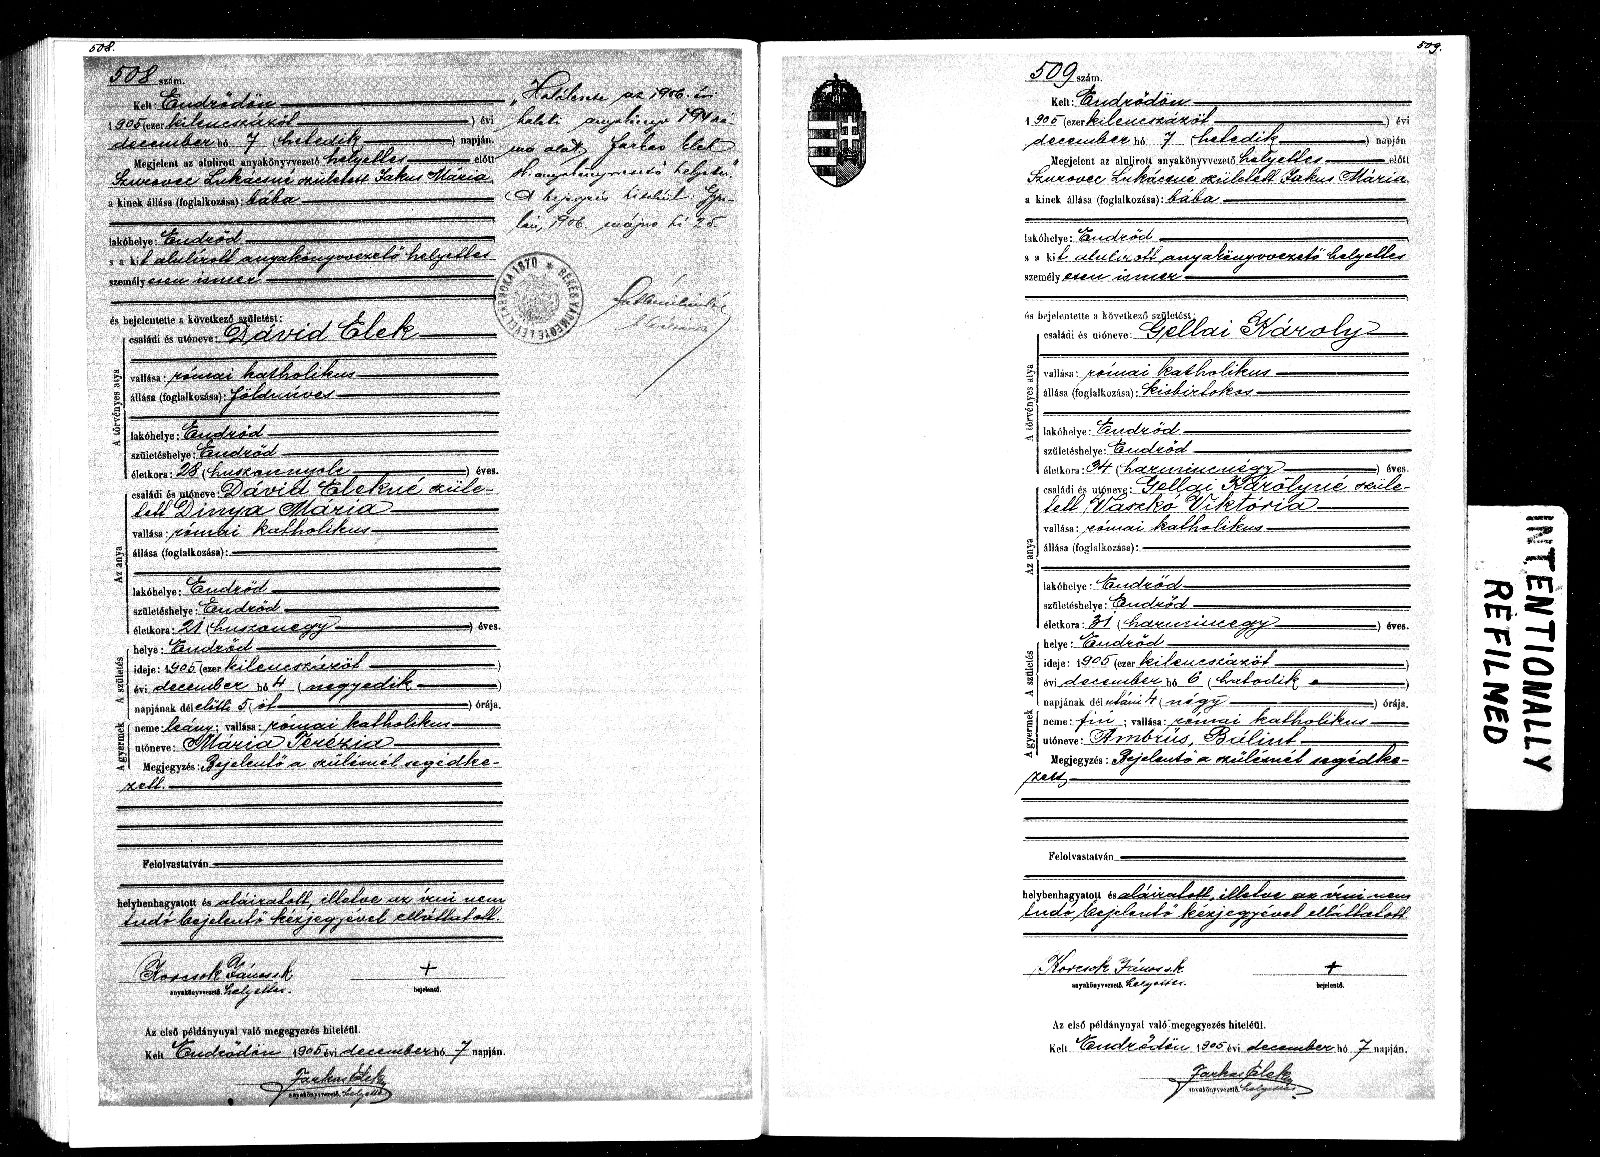 508.
508 szám.
Kelt: Endrődön
1905 (ezer kilencszázöt) évi
december hó 7 (hetedik) napján.
Megjelent az alulirott anyakönyvvezető helyettes előtt
Szurovec Lukácsné született Jakus Mária
a kinek állása (foglalkozása): bába
lakóhelye: Endrőd
s a kit alulirott anyakönyvvezető helyettes
személyesen ismer
és bejelentette a következő születést:
A törvényes atya
családi és utóneve: Dávid Elek
vallása: római katholikus
állása (foglalkozása): földmives
lakóhelye: Endrőd
születéshelye: Endrőd
életkora: 28 (huszonnyolc) éves.
Az anya
családi és utóneve: Dávid Elekné szüle-
tett Dinya Mária
vallása: római katholikus
állása (foglalkozása):
lakóhelye: Endrőd
születéshelye: Endrőd
életkora: 21 (huszonegy) éves.
A születés
helye: Endrőd
ideje: 1905 (ezer kilencszázöt)
évi december hó 4 (negyedik)
napjának dél előtti 5 (öt) órája.
A gyermek
neme: leány; vallása: római katholikus
utóneve: Mária Terézia
Megjegyzés: Bejelentő a szülésnél segédke-
zett.
Felolvastatván
helybenhagyatott és aláiratott, illetve az írni nem
tudó bejelentő kézjegyével elláttatott.
Korcsok Jánossk +
anyakönyvvezető helyettes. bejelentő.
Az első példánynyal való megegyezés hiteléül.
Kelt Endrődön 1905 évi december hó 7 napján.
Farkas Elek
anyakönyvvezető. helyettes
az 1906.
halotti
alatt, Farkas Elek
h. anyakönyvvezető helyettes."
A bejegyzés hiteléül. Gyu-
lán, 1906. május hó 25.
BÉKÉSVÁRMEGYE LEVÉLTÁRNOKA 1870
509.
509 szám.
Kelt: Endrődön
1905 (ezer kilencszázöt) évi
december hó 7 (hetedik) napján
Megjelent az alulirott anyakönyvvezető helyettes előtt
Szurovec Lukácsné született Jakus Mária
a kinek állása (foglalkozása): bába
lakóhelye: Endrőd
s a kit alulirott anyakönyvvezető helyettes
személyesen ismer
és bejelentette a következő születést:
A törvényes atya
családi és utóneve: Gellai Károly
vallása: római katholikus
állása (foglalkozása): kisbirtokos
lakóhelye: Endrőd
születéshelye: Endrőd
életkora: 34 (harmincnégy) éves.
Az anya
családi és utóneve: Gellai Károlyné szüle-
tett Vaszkó Viktória
vallása: római katholikus
állása (foglalkozása):
lakóhelye: Endrőd
születéshelye: Endrőd
életkora: 31 (harmincegy) éves.
A születés
helye: Endrőd
ideje: 1905 (ezer kilencszázöt)
évi december hó 6 (hatodik)
napjának dél utáni 4 (négy) órája.
A gyermek
neme: fiú; vallása: római katholikus
utóneve: Ambrús, Bálint
Megjegyzés: Bejelentő a szülésnél segédke-
zett
Felolvastatván
helybenhagyatott és aláiratott, illetve az írni nem
tudó bejelentő kézjegyével elláttatott
Korcsok Jánossk +
anyakönyvvezető. helyettes. bejelentő.
Az első példánynyal való megegyezés hiteléül.
Kelt Endrődön 1905 évi december hó 7 napján.
Farkas Elek
anyakönyvvezető. helyettes
INTENTIONALLY
REFILMED